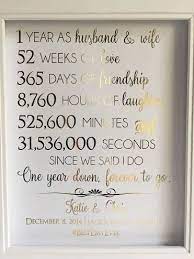 1 YEAR AS husband & wife
52 WEEKS OF love
365 DAYS OF friendship
8,760 HOURS OF laughter
525,600 MINUTES
31,536,000 SECONDS
SINCE WE SAID I DO
One year down, forever to go.
Katie & Chris
DECEMBER 6, 2014